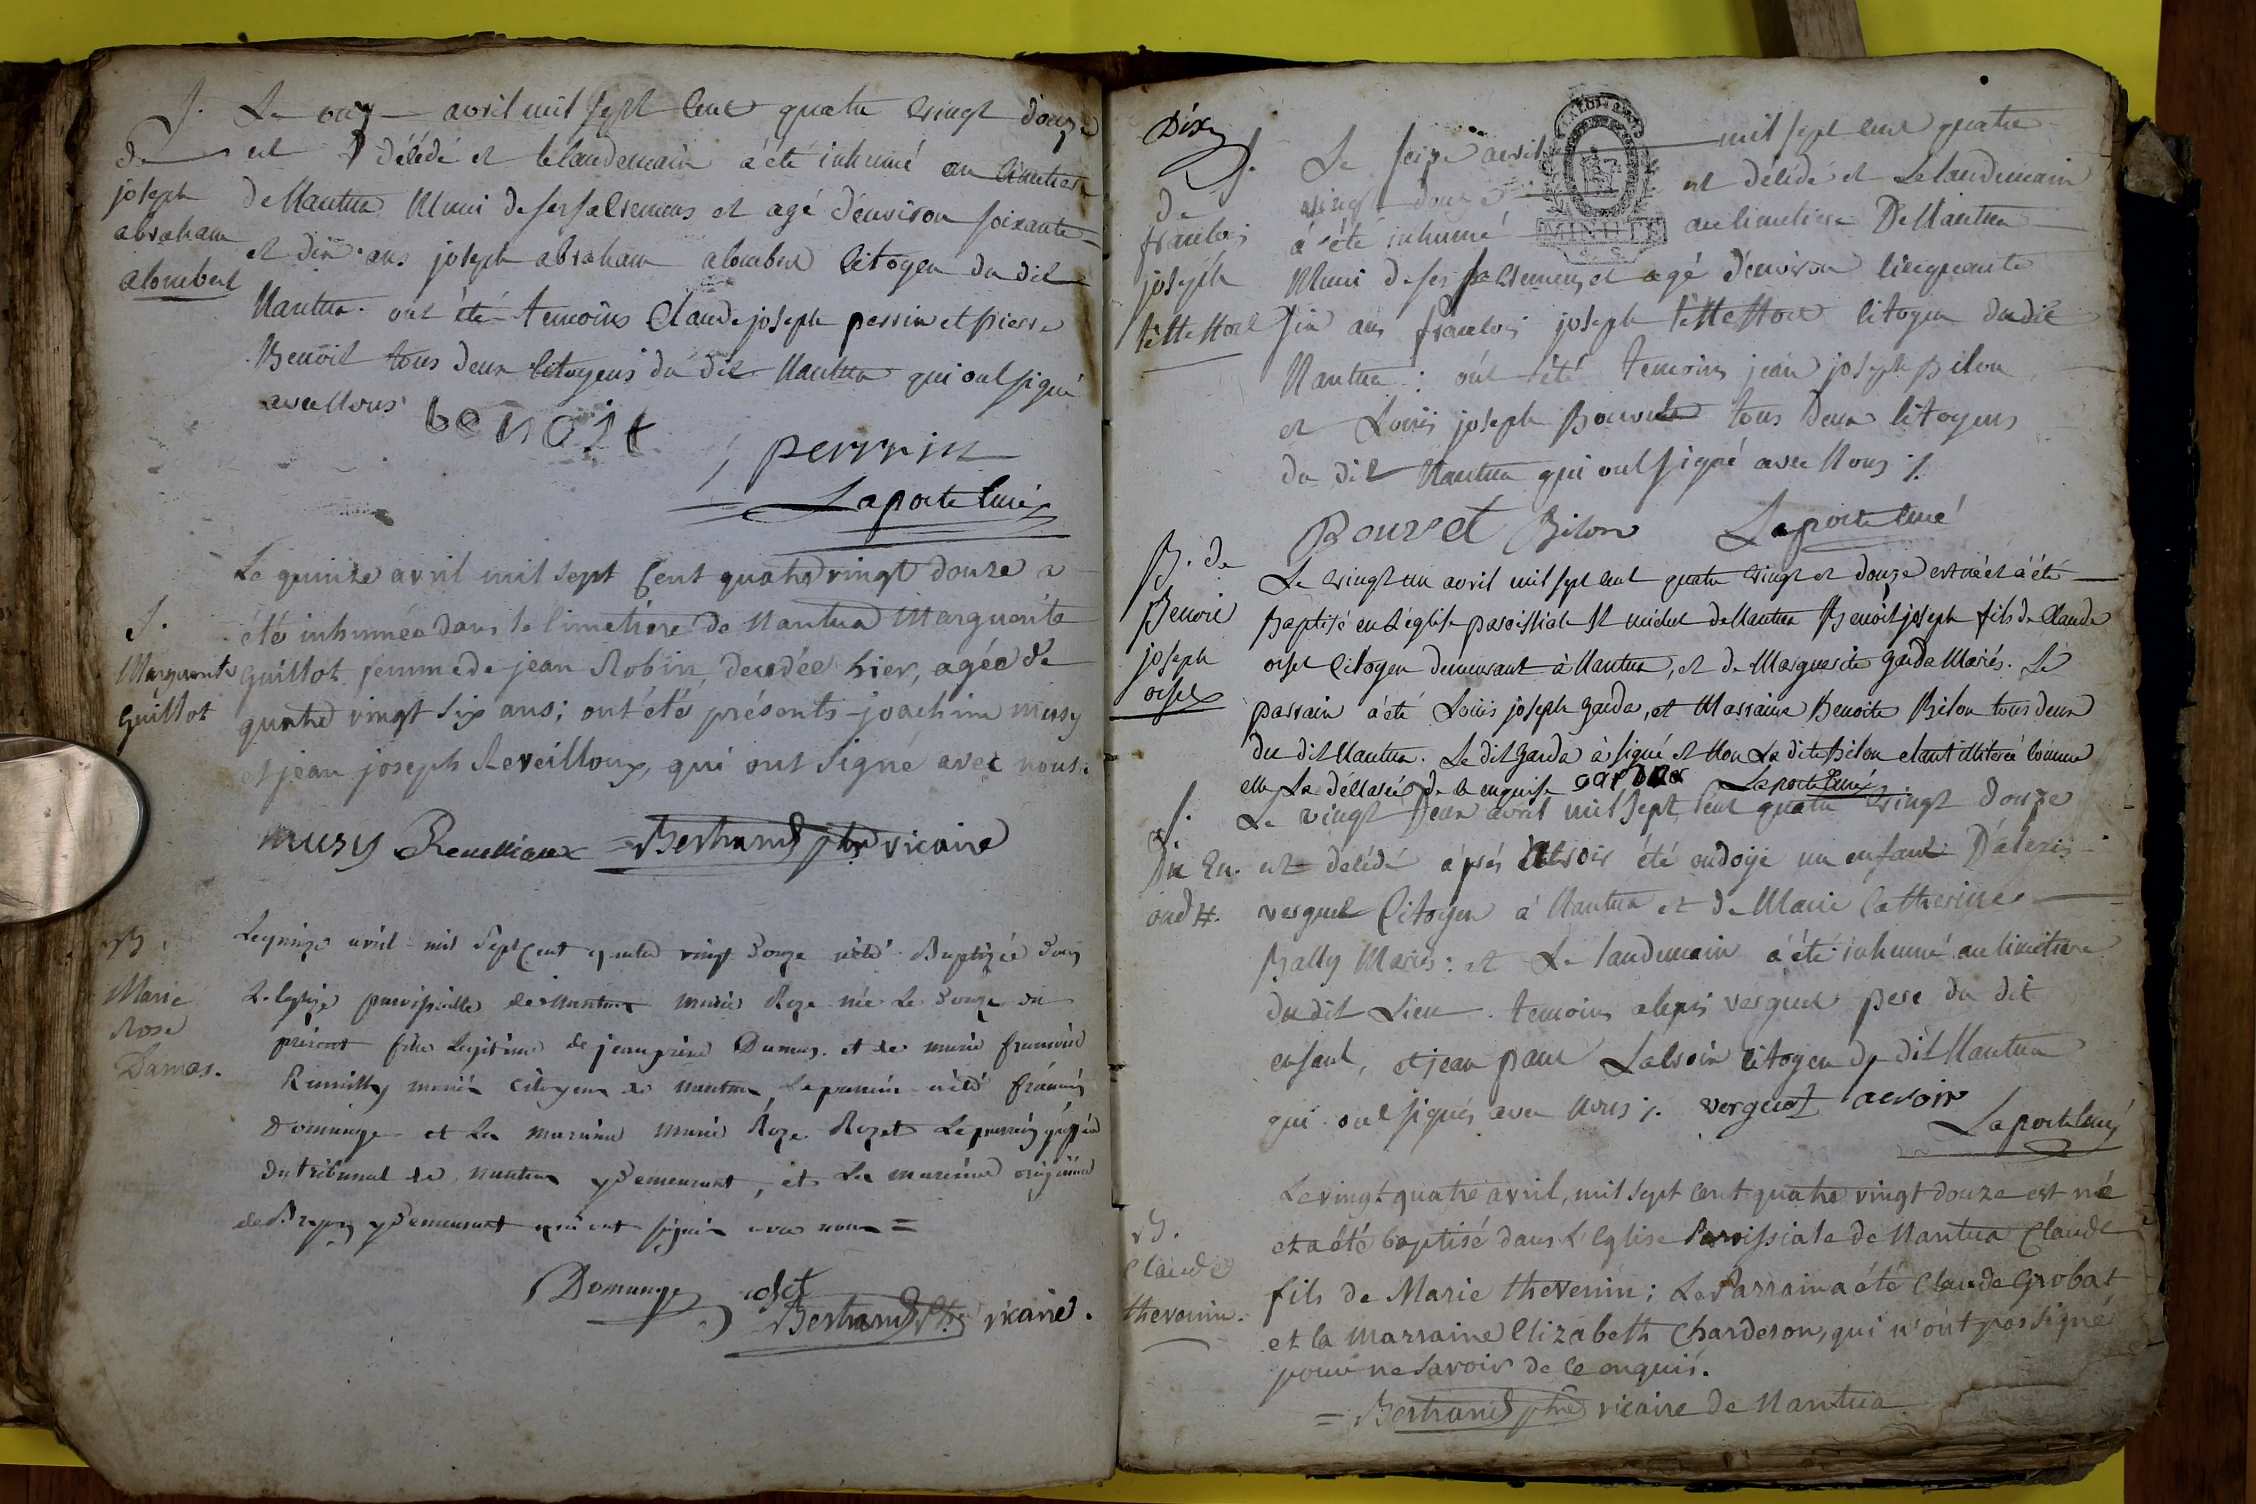 S.
de
joseph
abraham
alombert
Le onze avril mil sept cent quatre vingt douze
est décédé et le landemain a été inhumé au cimetiere
de Nantua Muni de ses sacremens et agé d'environ soixante
et dix ans joseph abraham alombert citoyen du dit
Nantua. ont été temoins Claude joseph perrin et pierre
Benoit tous deux citoyens du dit Nantua qui ont signé
avec Nous
benoit
perrin
Laporte Curé
S.
Marguerite
Guillot
Le quinze avril mil sept Cent quatre vingt douze a
été inhumée dans le Cimetiere de Nantua Marguerite
Guillot femme de jean Robin, decedée hier, agée de
quatre vingt six ans; ont été présents joachim musy
et jean joseph Reveilloux, qui ont signé avec nous.
musy Reveilliaux = Bertrand ptre vicaire
B.
Marie
Rose
Damas.
Le quinze avril mil sept Cent quatre vingt douze a été Baptizée dans
L'eglize paroissialle de Nantua marie Roze née Le douze du
présent fille Legitime de jean pierre Dumas et de marie francoise
Rumilly mariés citoyens de nantua, Le parrain a été francois
Domange et La maraine marie Roze Rozet Le parrain greffier
du tribunal de nantua y demeurant, et La maraine originaire
de y demeurant qui ont signés avec nous =
Domange
Bertrand ptre vicaire.
Dix
S.
de
francois
joseph
Le seize avril mil sept cent quatre
vingt douze est décédé et Le landemain
a été inhumé au cimetiere De Nantua
MINUTE
Muni de ses sacremens et agé d'environ cinquante
six ans francois joseph citoyen du dit
Nantua: ont été temoins jean joseph Bilon
et Louis joseph Bouvet tous deux citoyens
du dit Nantua qui ont signé avec Nous ./.
Bouvet Bilon Laporte Curé
B. de
Benoit
joseph
oisel
Le vingt un avril mil sept cent quatre vingt et douze est né et a été
Baptisé en L'église paroissiale St michel de Nantua Benoit joseph fils de Claude
oisel Citoyen demeurant à Nantua, et de Marguerite garda Mariés. Le
parrain a été Louis joseph garda, et Marraine Benoite Bilon tous deux
du dit Nantua. Le dit garda a signé et Non La dite Bilon etant illiterée comme
elle La déclaré de ce enquise gardaz Laporte Curé
S.
Du En.
ond #.
Le vingt Deux avril mil sept cent quatre vingt douze
est décédé aprés avoir été ondoyé un enfant D'alexis
verguet Citoyen à Nantua et de Marie Catherine
Bally Mariés: et Le landemain a été inhumé au cimetiere
du dit Lieu. temoins alexis verguet pere du dit
enfant, et jean paul Lavoir citoyen du dit Nantua
qui ont signés avec Nous ./. verguet Lavoir
Laporte Curé
B.
Claude
thevenin.
Le vingt quatre avril, mil sept Cent quatre vingt douze est né
et a été baptisé dans L'Eglise Paroissiale de Nantua Claude
fils de Marie thevenin; Le Parrain a été Claude Grobat
et la marraine Elizabeth Charderon, qui n'ont pas signé
pour ne savoir de ce enquis.
= Bertrand ptre vicaire de Nantua